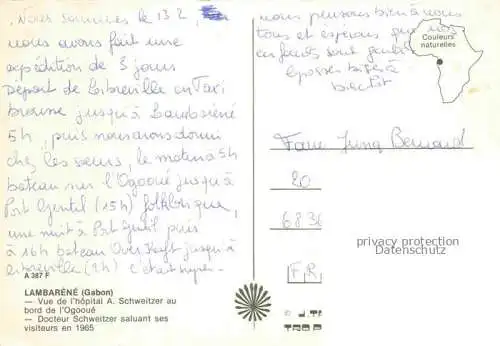 Nous sommes le 13 2,
nous avons fait une
expédition de 3 jours
Départ de Libreville en Taxi
brousse jusqu'à
5h, puis nous avons dormi
chez les sœurs, le matin à 5h
bateau sur l'Ogooué jusqu'à
Port Gentil (15h) folklorique,
une nuit à Port Gentil puis
à 16h bateau jusqu'à
Libreville (2h) c'était super.
nous pensons bien à vous
tous et espérons que vos
enfants sont
Grosses bises à
bientôt
Couleurs
naturelles
Fam Jung Bernard
20
6830
F.R.
privacy protection
Datenschutz
A 387 F
LAMBARÉNÉ (Gabon)
— Vue de l'hôpital A. Schweitzer au
bord de l'Ogooué
— Docteur Schweitzer saluant ses
visiteurs en 1965